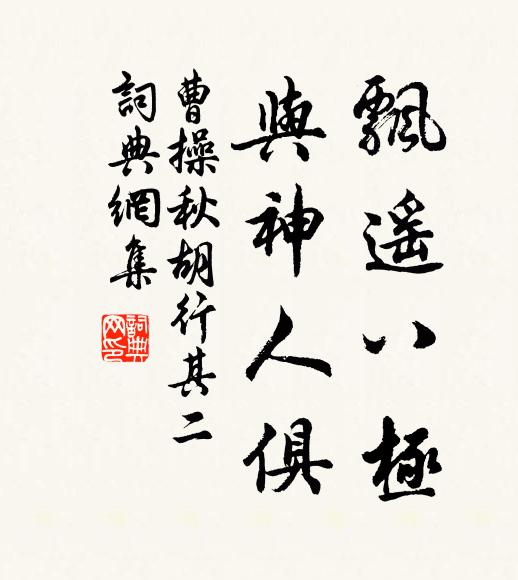 飄遥八極
與神人俱
曹操秋胡行其二
詞典網集
詞典网印